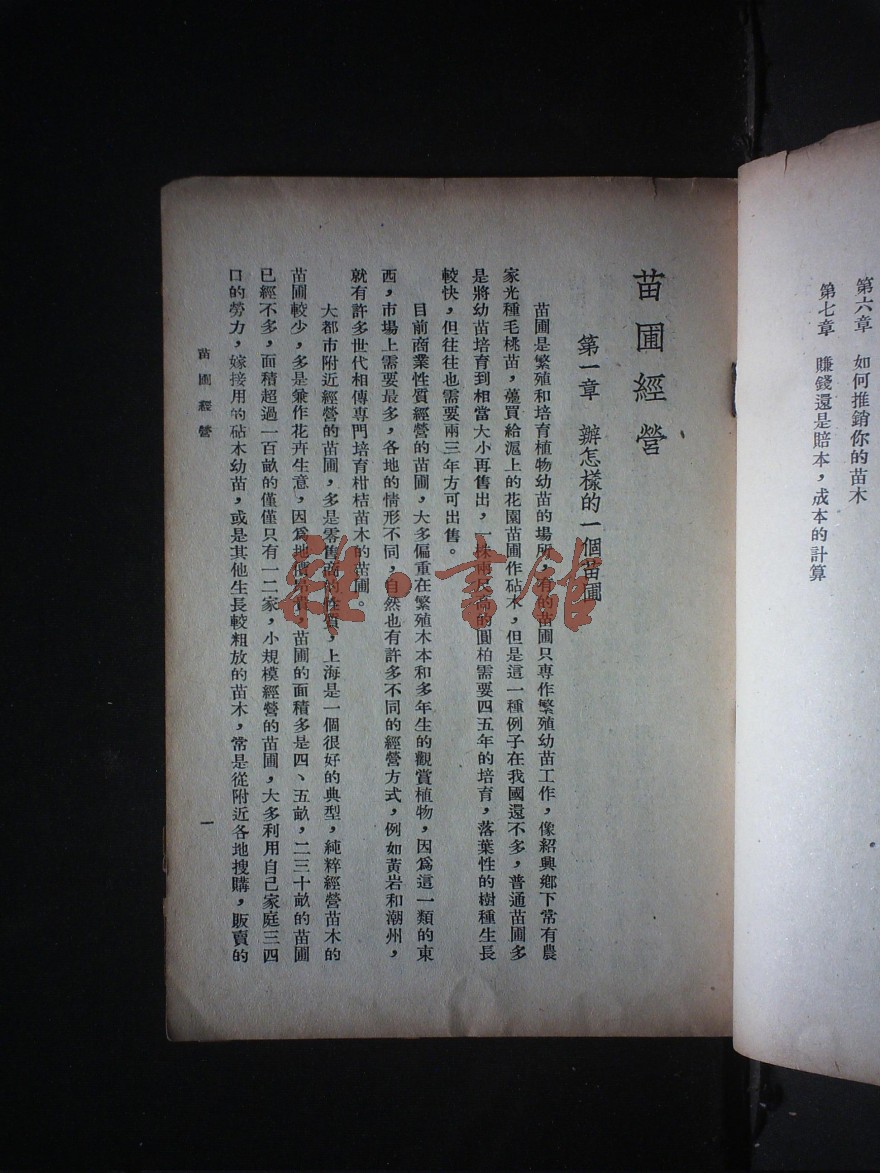 第六章　如何推銷你的苗木
第七章　賺錢還是賠本，成本的計算
苗圃經營
第一章　辦怎樣的一個苗圃
苗圃是繁殖和培育植物幼苗的場所，有的苗圃只專作繁殖幼苗工作，像紹興鄉下常有農
家光種毛桃苗，躉買給滬上的花園苗圃作砧木，但是這一種例子在我國還不多，普通苗圃多
是將幼苗培育到相當大小再售出，一株兩尺高的圓柏需要四五年的培育，落葉性的樹種生長
較快，但往往也需要兩三年方可出售。
目前商業性質經營的苗圃，大多偏重在繁殖木本和多年生的觀賞植物，因爲這一類的東
西，市場上需要最多，各地的情形不同，自然也有許多不同的經營方式，例如黃岩和潮州，
就有許多世代相傳專門培育柑桔苗木的苗圃。
大都市附近經營的苗圃，多是零售商的性質，上海是一個很好的典型，純粹經營苗木的
苗圃較少，多是兼作花卉生意，因爲地價昂貴，苗圃的面積多是四、五畝，二三十畝的苗圃
已經不多，面積超過一百畝的僅僅只有一二家，小規模經營的苗圃，大多利用自己家庭三四
口的勞力，嫁接用的砧木幼苗，或是其他生長較粗放的苗木，常是從附近各地搜購，販賣的
苗圃經營
一
雜·書館